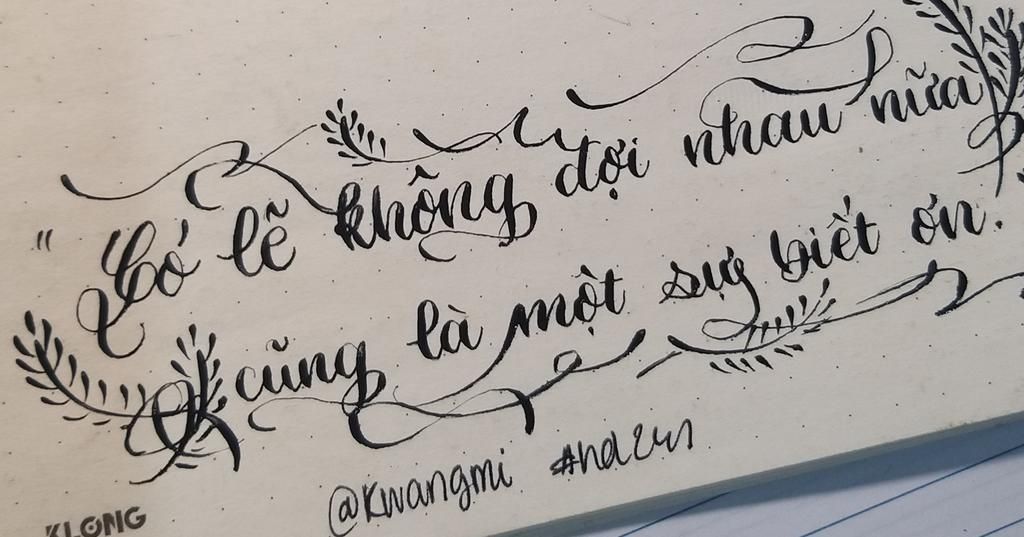 "Có lẽ không đợi nhau nữa
cũng là một sự biết ơn.
@Kwangmi
KLONG